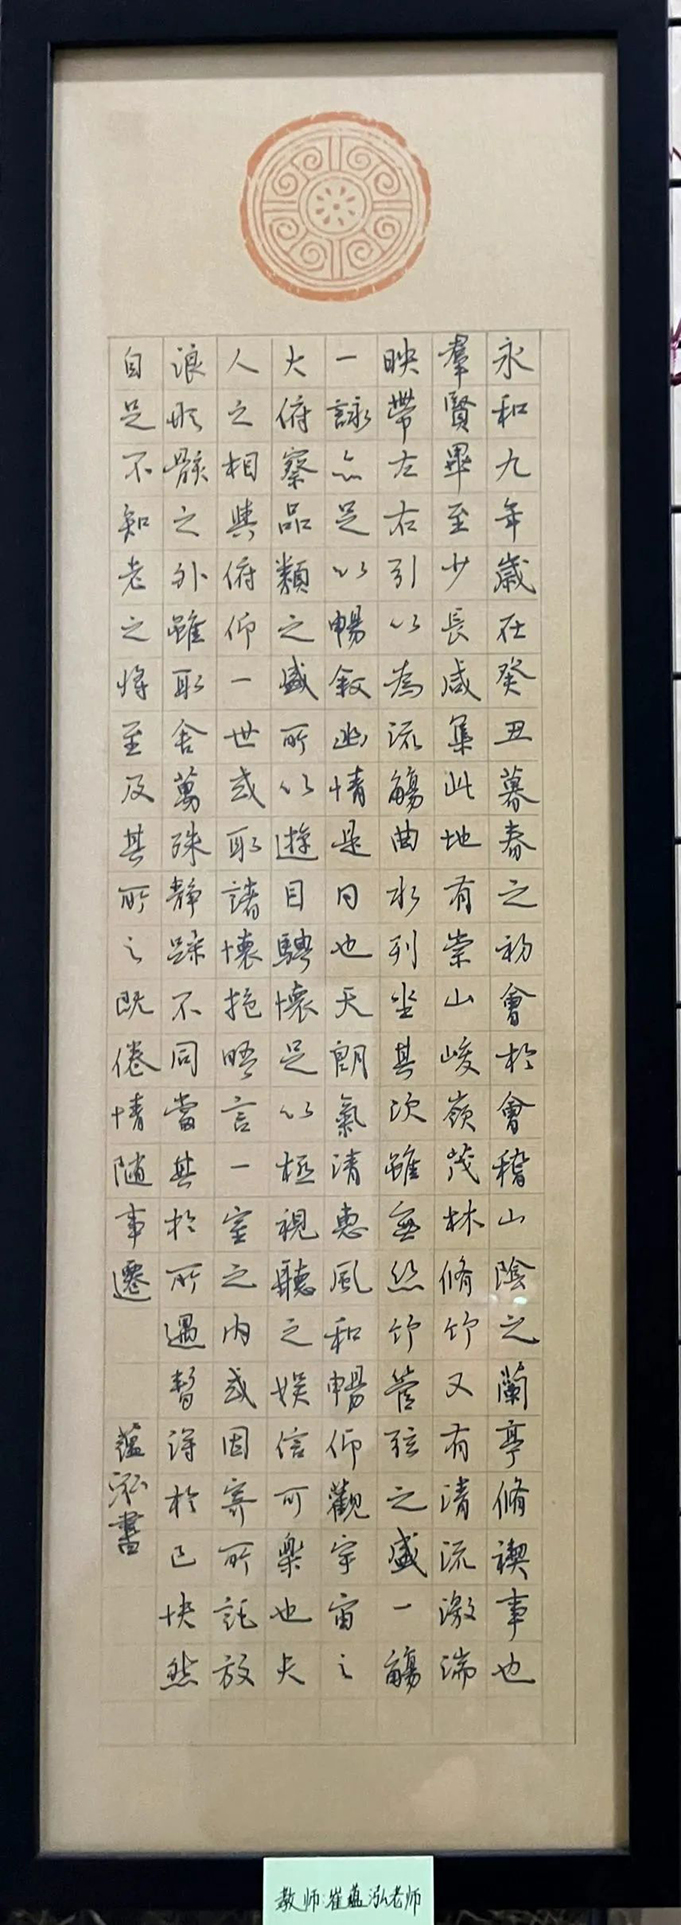 永和九年歲在癸丑暮春之初會於會稽山陰之蘭亭脩禊事也
羣賢畢至少長咸集此地有崇山峻嶺茂林脩竹又有清流激湍
映帶左右引以為流觴曲水列坐其次雖無絲竹管弦之盛一觴
一詠亦足以暢敘幽情是日也天朗氣清惠風和暢仰觀宇宙之
大俯察品類之盛所以遊目騁懷足以極視聽之娛信可樂也夫
人之相與俯仰一世或取諸懷抱晤言一室之內或因寄所託放
浪形骸之外雖取舍萬殊靜躁不同當其於所遇暫得於己快然
自足不知老之將至及其所之既倦情隨事遷
蘊泓書
教师:崔蕴泓老师